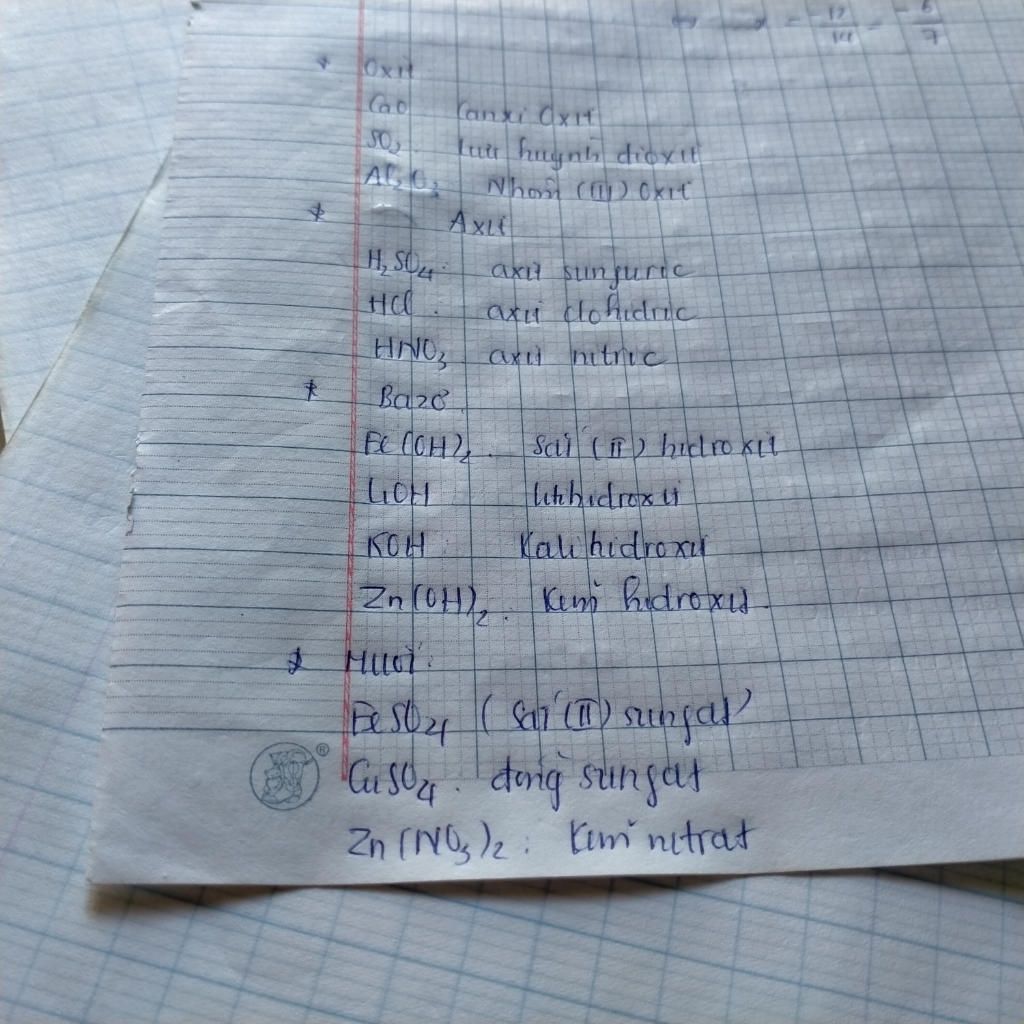 = -12/14 = -6/7
* Oxit
CaO Canxi Oxit
SO2. lưu huỳnh đioxit
Al2O3 Nhôm (III) Oxit
* Axit
H2SO4: axit sunfuric
HCl: axit clohidric
HNO3 axit nitric
* Bazơ
Fe(OH)2. Sắt (II) hidroxit
LiOH liti hidroxit
KOH: Kali hidroxit
Zn(OH)2. Kẽm hidroxit.
* Muối:
FeSO4 (Sắt (II) sunfat)
CuSO4. đồng sunfat
Zn(NO3)2: Kẽm nitrat
®